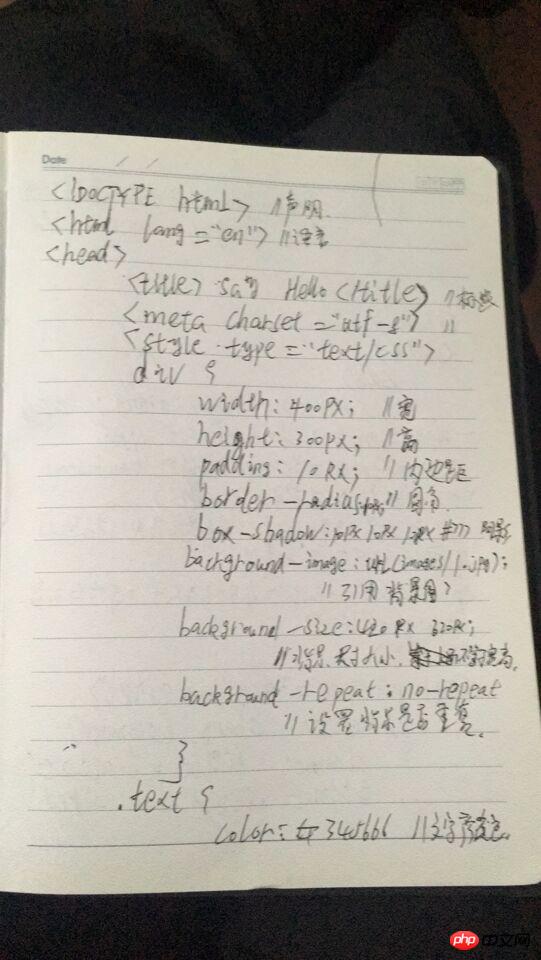 Date
<!DOCTYPE html> //声明
<html lang="en"> //语言
<head>
<title> say Hello </title> //标题
<meta charset="utf-8"> //
<style type="text/css">
div {
width: 400px; //宽
height: 300px; //高
padding: 10px; //内边距
border-radius: //圆角
box-shadow: 10px 10px #777 阴影
background-image: url(images/1.jpg);
//引用背景图
background-size: 420px 320px;
//背景尺寸大小, 宽高。
background-repeat: no-repeat
//设置背景是否重复。
}
.text {
color: #345666 //文字颜色。
php中文网